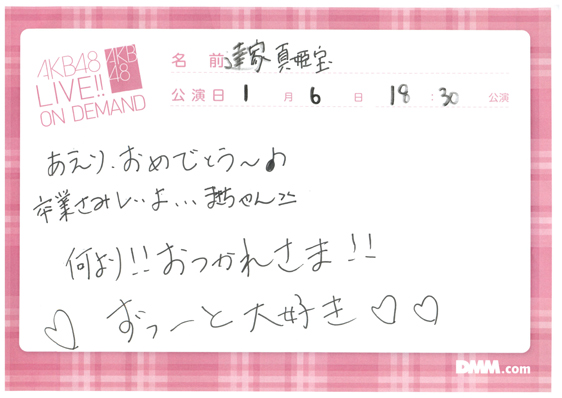 AKB48
LIVE!!
ON DEMAND
AKB
48
名 前 達家真姫宝
公演日 1 月 6 日 18 : 30 公演
あえり、おめでとう〜♪
卒業さみしいよ...まちゃん
何より!!おつかれさま!!
♡ ずっーと大好き♡♡
DMM.com